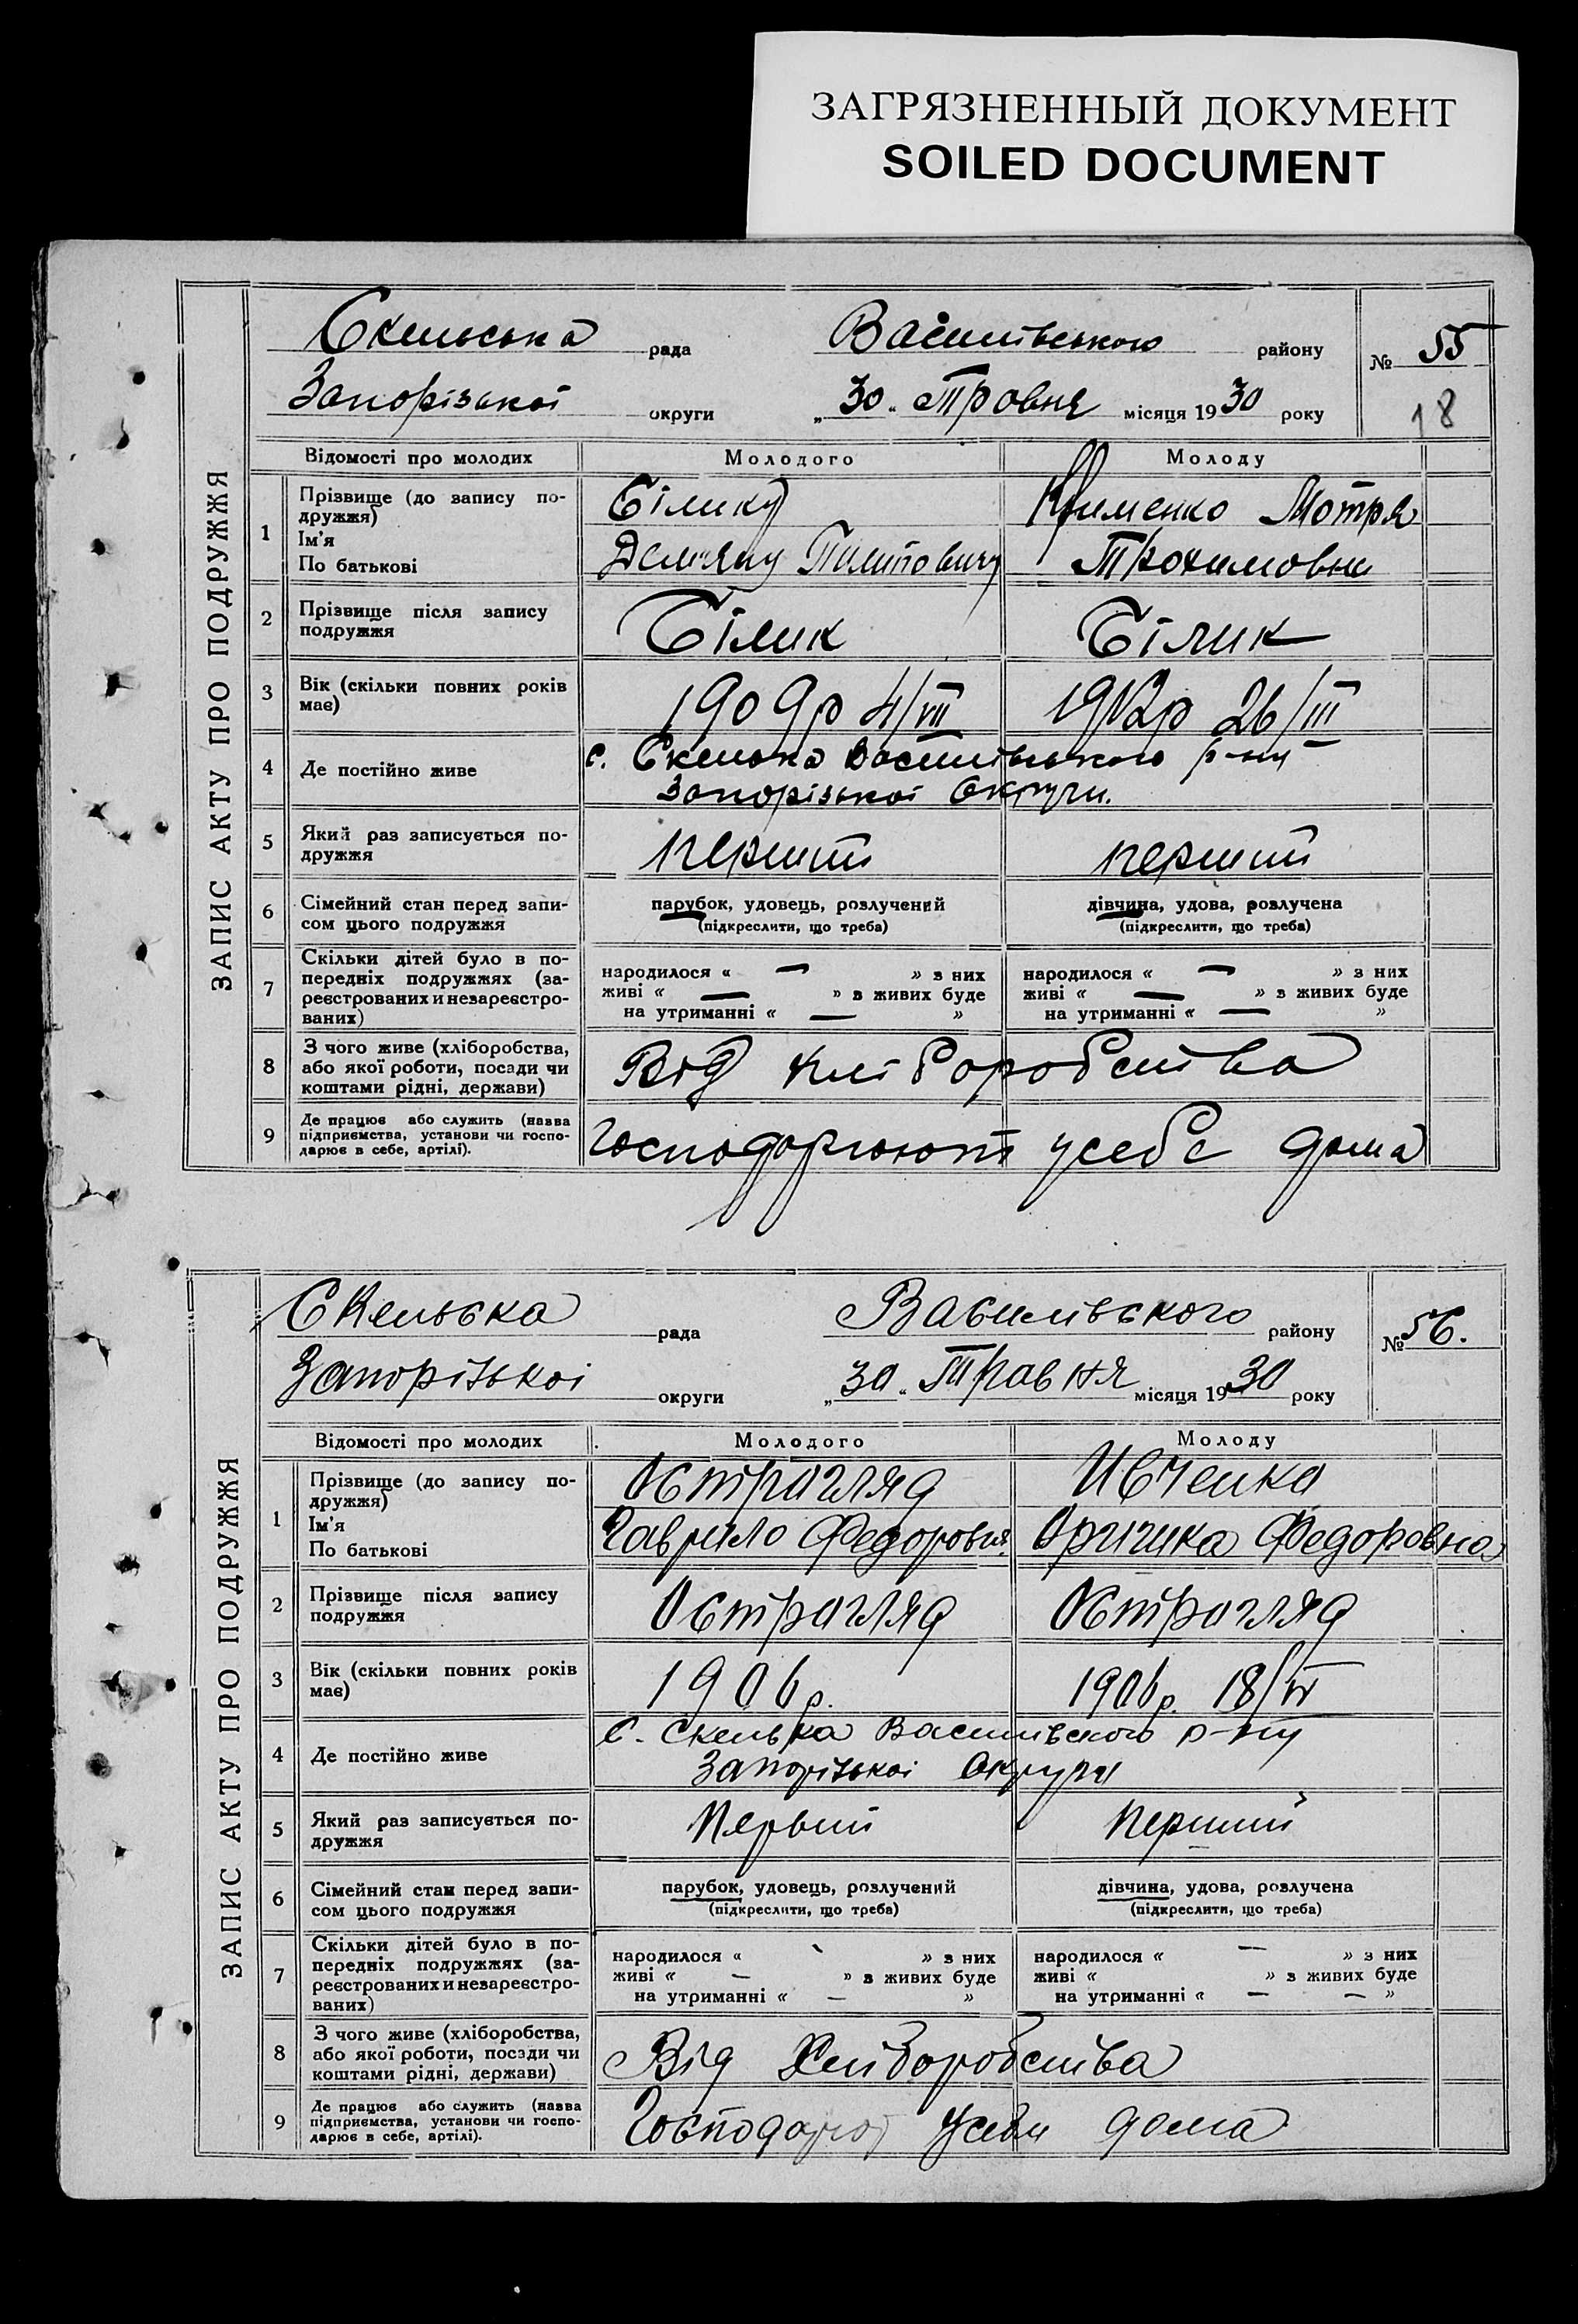 ЗАГРЯЗНЕННЫЙ ДОКУМЕНТ
SOILED DOCUMENT
ЗАПИС АКТУ ПРО ПОДРУЖЖЯ
Скельська рада Василівського району № 55
Запорізької округи „30" Травня місяця 1930 року 18
Відомості про молодих Молодого Молоду
1 Прізвище (до запису подружжя) Ім'я По батькові
Білику Клименко Мотря
Демяну Пилиповичу Трохимовни
2 Прізвище після запису подружжя Білик Білик
3 Вік (скільки повних років має) 1909р 4/VII 1912р 26/III
4 Де постійно живе с. Скелька Василівського р-ну
Запорізької Округи.
5 Який раз записується подружжя перший перший
6 Сімейний стан перед записом цього подружжя парубок, удовець, розлучений дівчина, удова, розлучена
(підкреслити, що треба) (підкреслити, що треба)
7 Скільки дітей було в попередніх подружжях (зареєстрованих и незареєстрованих)
народилося « — » з них народилося « — » з них
живі « — » з живих буде живі « — » з живих буде
на утриманні « — » на утриманні « — »
8 З чого живе (хліборобства, або якої роботи, посади чи коштами рідні, держави) Від хліборобства
9 Де працює або служить (назва підприємства, установи чи господарює в себе, артілі). Господорюют усебе дома
ЗАПИС АКТУ ПРО ПОДРУЖЖЯ
Скельска рада Василівского району № 56.
Запорізькоі округи „30" Травня місяця 1930 року
Відомості про молодих Молодого Молоду
1 Прізвище (до запису подружжя) Ім'я По батькові
Острогляд Ивченко
Гаврило Федоровия Федоровна
2 Прізвище після запису подружжя Острогляд Острогляд
3 Вік (скільки повних років має) 1906р. 1906р. 18/VI
4 Де постійно живе С. Скелька Василівского р-ну
Запорізькоі Округи
5 Який раз записується подружжя Первий Перший
6 Сімейний стан перед записом цього подружжя парубок, удовець, розлучений дівчина, удова, розлучена
(підкреслити, що треба) (підкреслити, що треба)
7 Скільки дітей було в попередніх подружжях (зареєстрованих и незареєстрованих)
народилося « » з них народилося « — » з них
живі « — » з живих буде живі « » з живих буде
на утриманні « — » на утриманні « — — »
8 З чого живе (хліборобства, або якої роботи, посади чи коштами рідні, держави) Від Хліборобства
9 Де працює або служить (назва підприємства, установи чи господарює в себе, артілі). дома